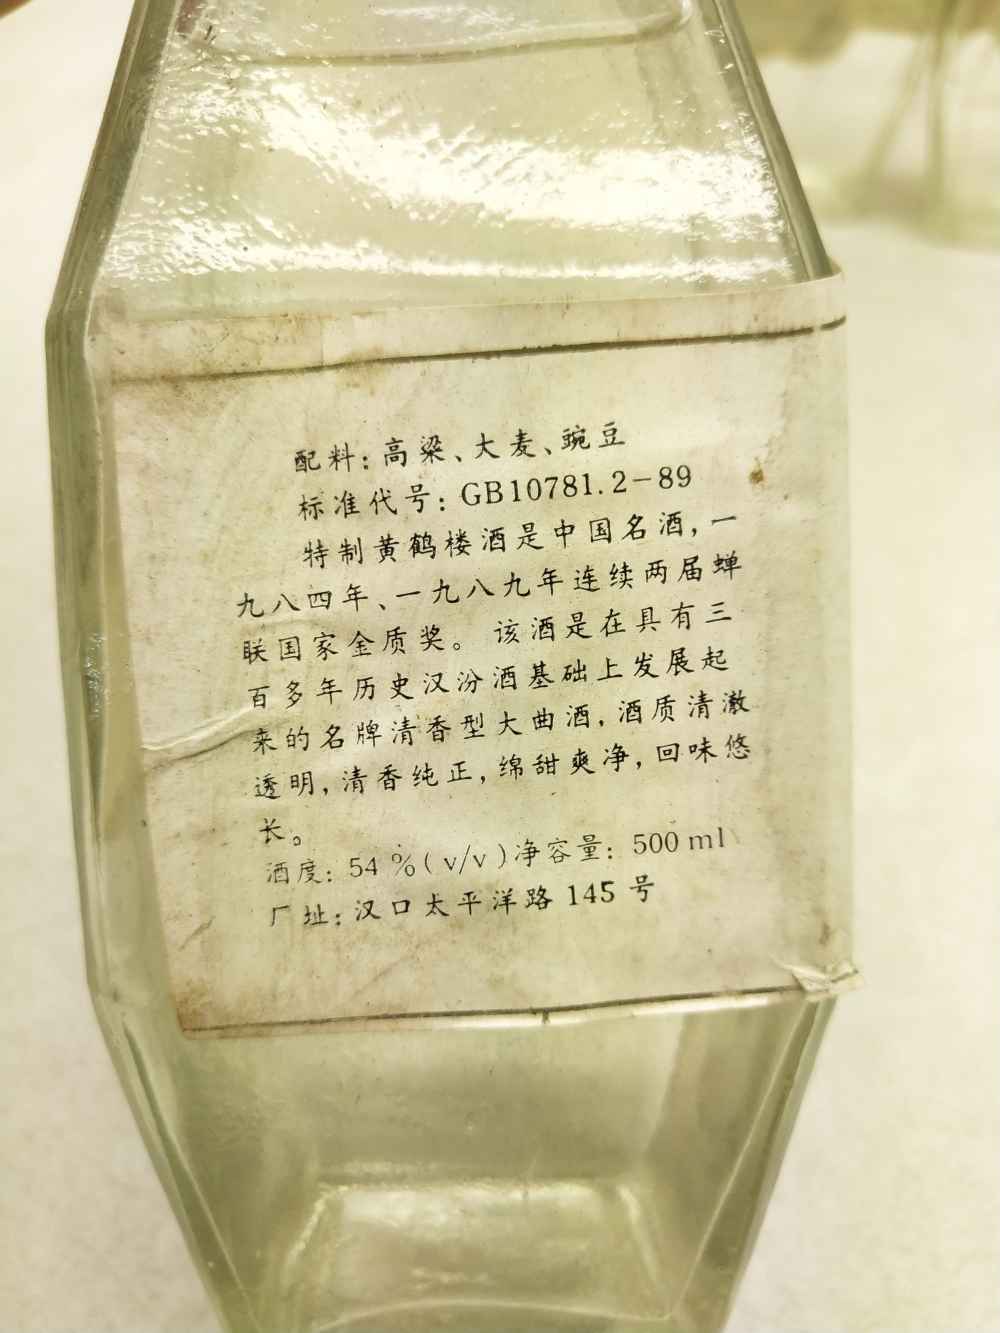 配料：高粱、大麦、豌豆
标准代号：GB10781.2-89
特制黄鹤楼酒是中国名酒，一
九八四年、一九八九年连续两届蝉
联国家金质奖。该酒是在具有三
百多年历史汉汾酒基础上发展起
来的名牌清香型大曲酒，酒质清澈
透明，清香纯正，绵甜爽净，回味悠
长。
酒度：54％(v/v)净容量：500ml
厂址：汉口太平洋路145号